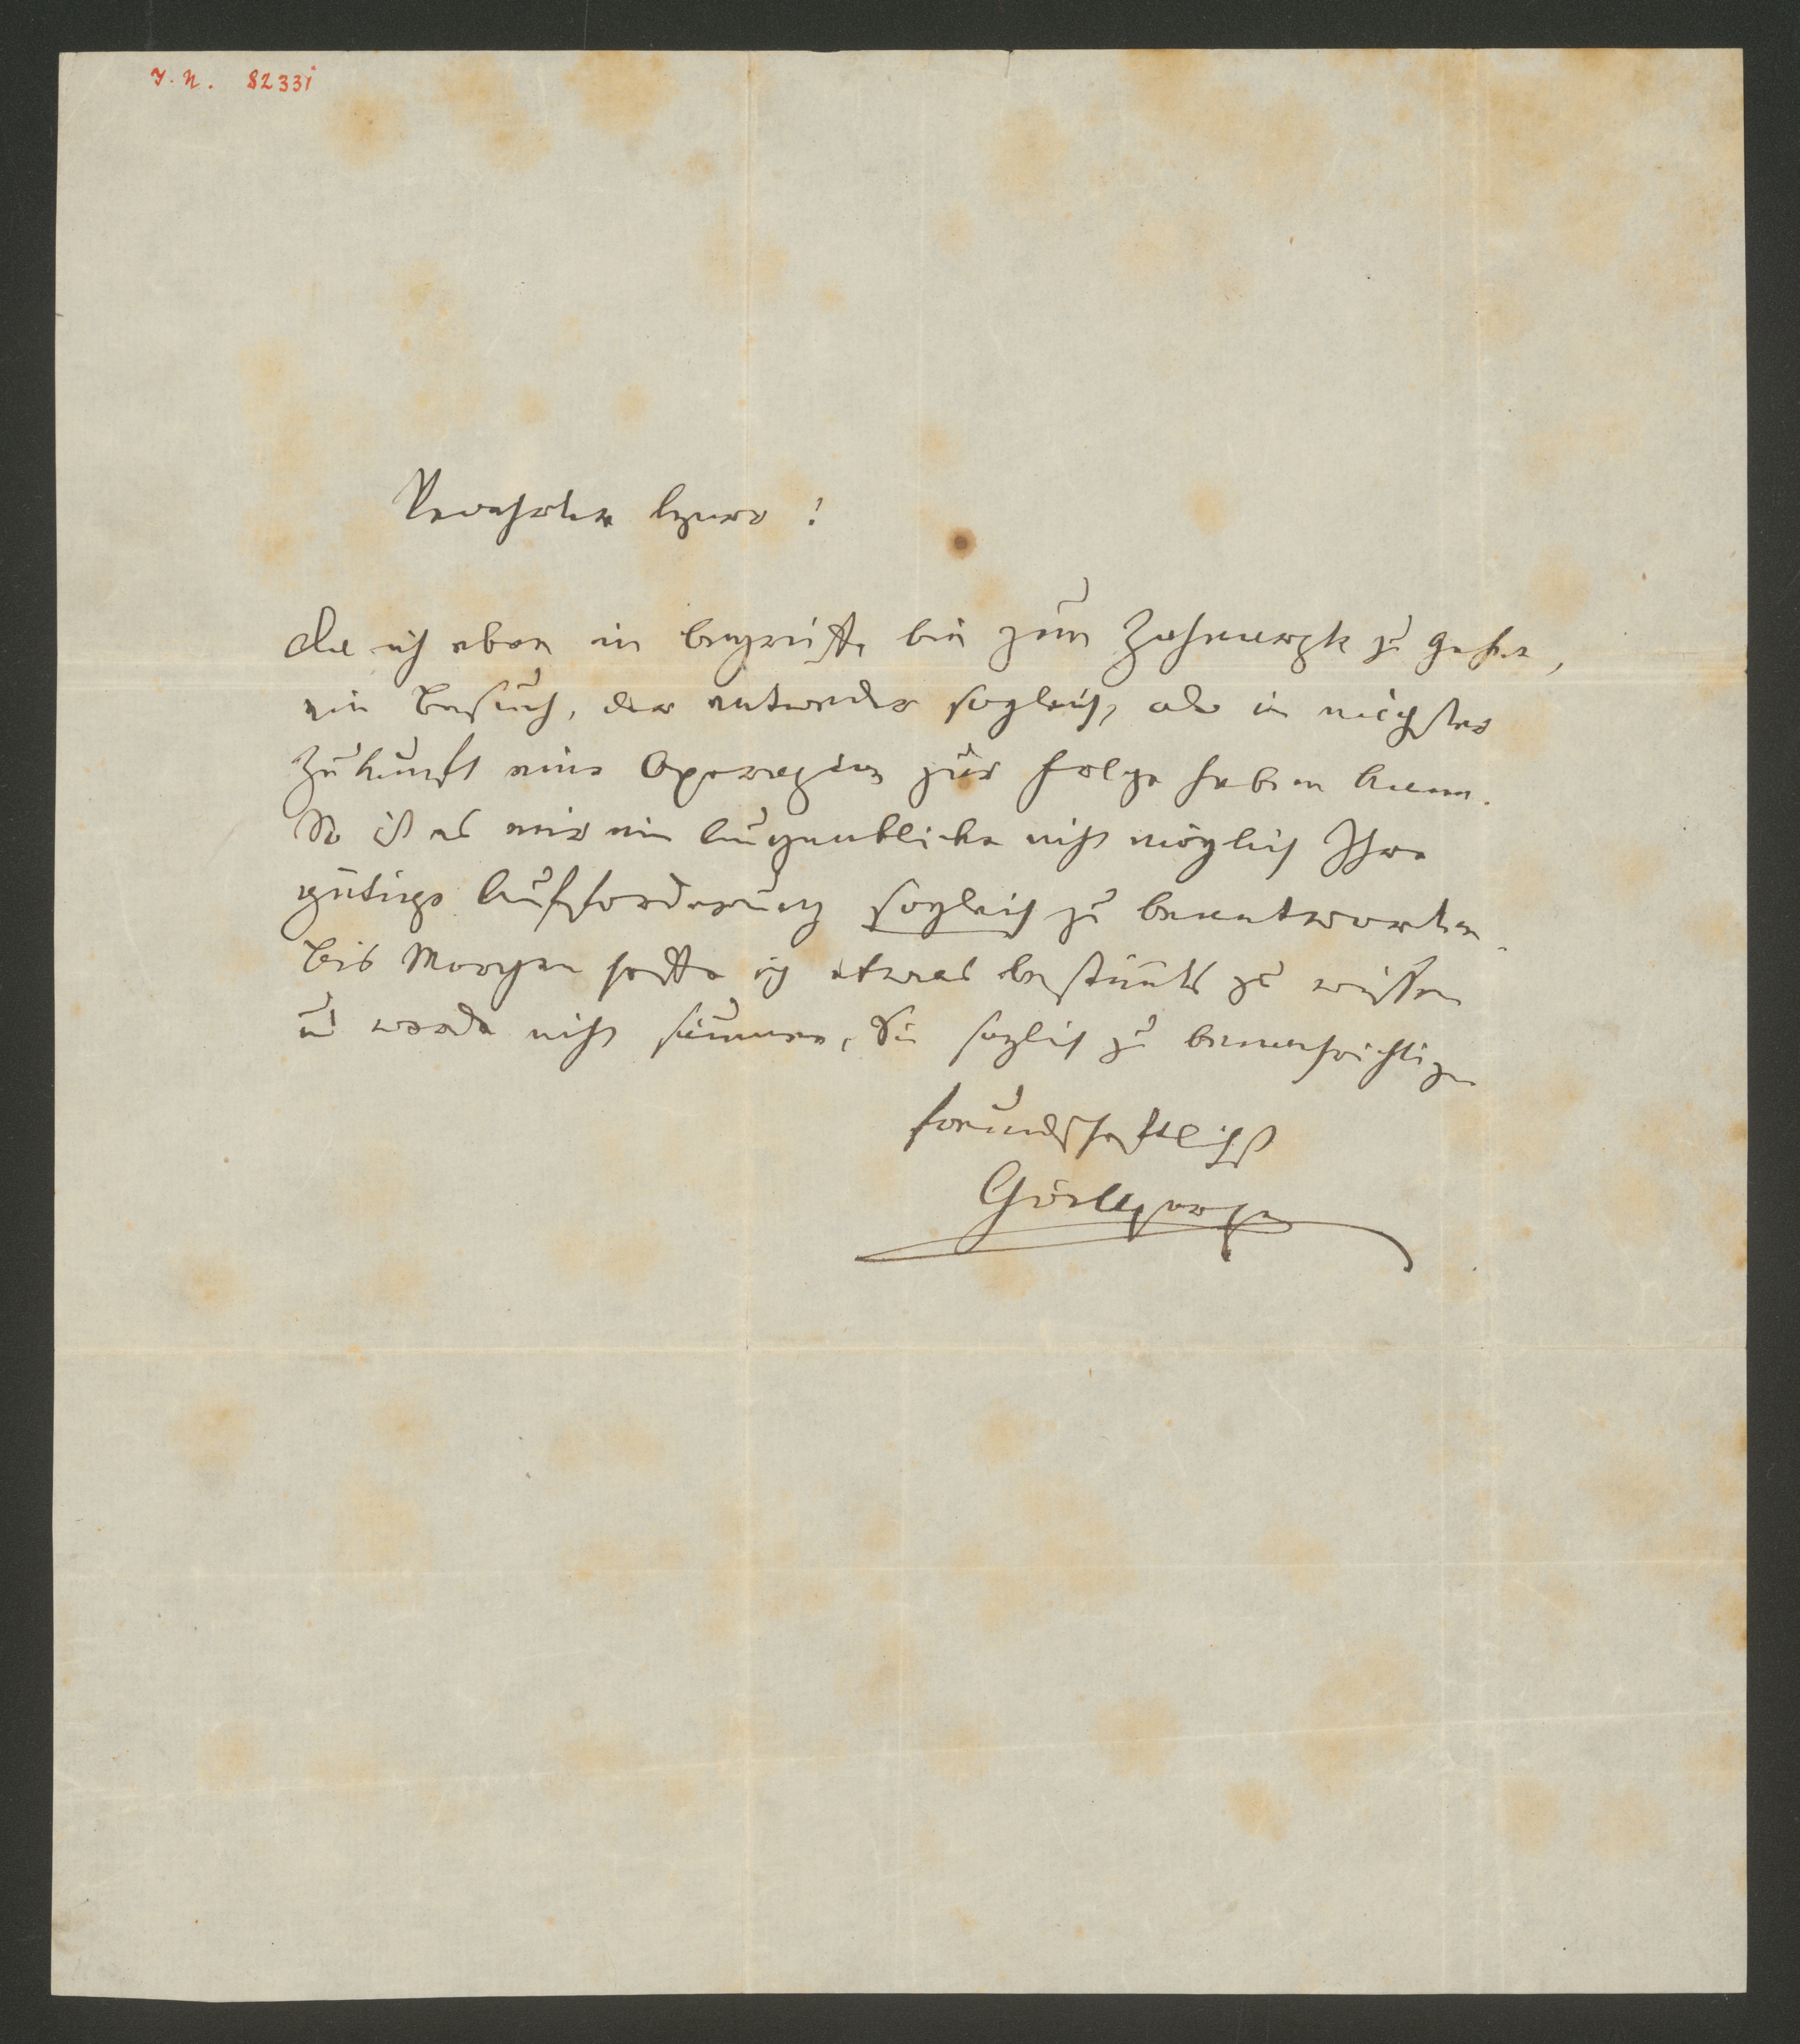 I. N. 82331
Verehrter Herr !
Da ich eben im begriffe bin zum Zahnarzte zu gehen,
ein Besuch, der entweder sogleich, oder in nächster
Zukunft eine Operazion zur Folge haben kann.
So ist es mir im Augenblicke nicht möglich Ihre
gütige Aufforderung sogleich zu beantworten.
Bis Morgen hoffe ich etwas bestimtes zu wissen
u werde nicht säumen, Sie soglich zu benachrichtigen
freundschaftlichst